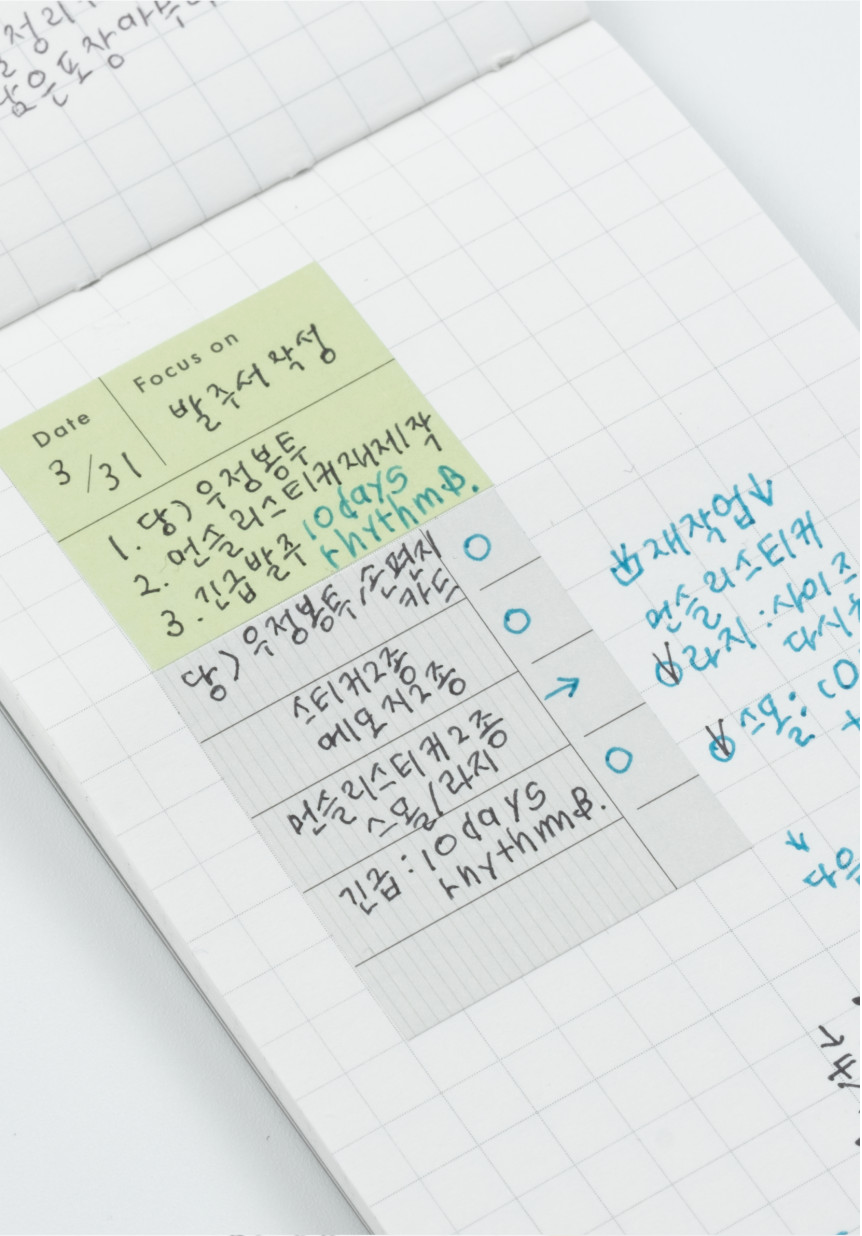 Date
3/31
Focus on
발주서 작성
1. 당) 우정봉투
2. 먼슬리스티커재제작
3. 긴급발주 10days
rhythm.B.
당) 우정봉투/손편지
카드
스티커2종
메모지2종
먼슬리스티커2종
스몰/라지
긴급 : 10days
rhythm.B.
재작업
먼슬리스티커
라지 : 사이즈
다시
스몰 :